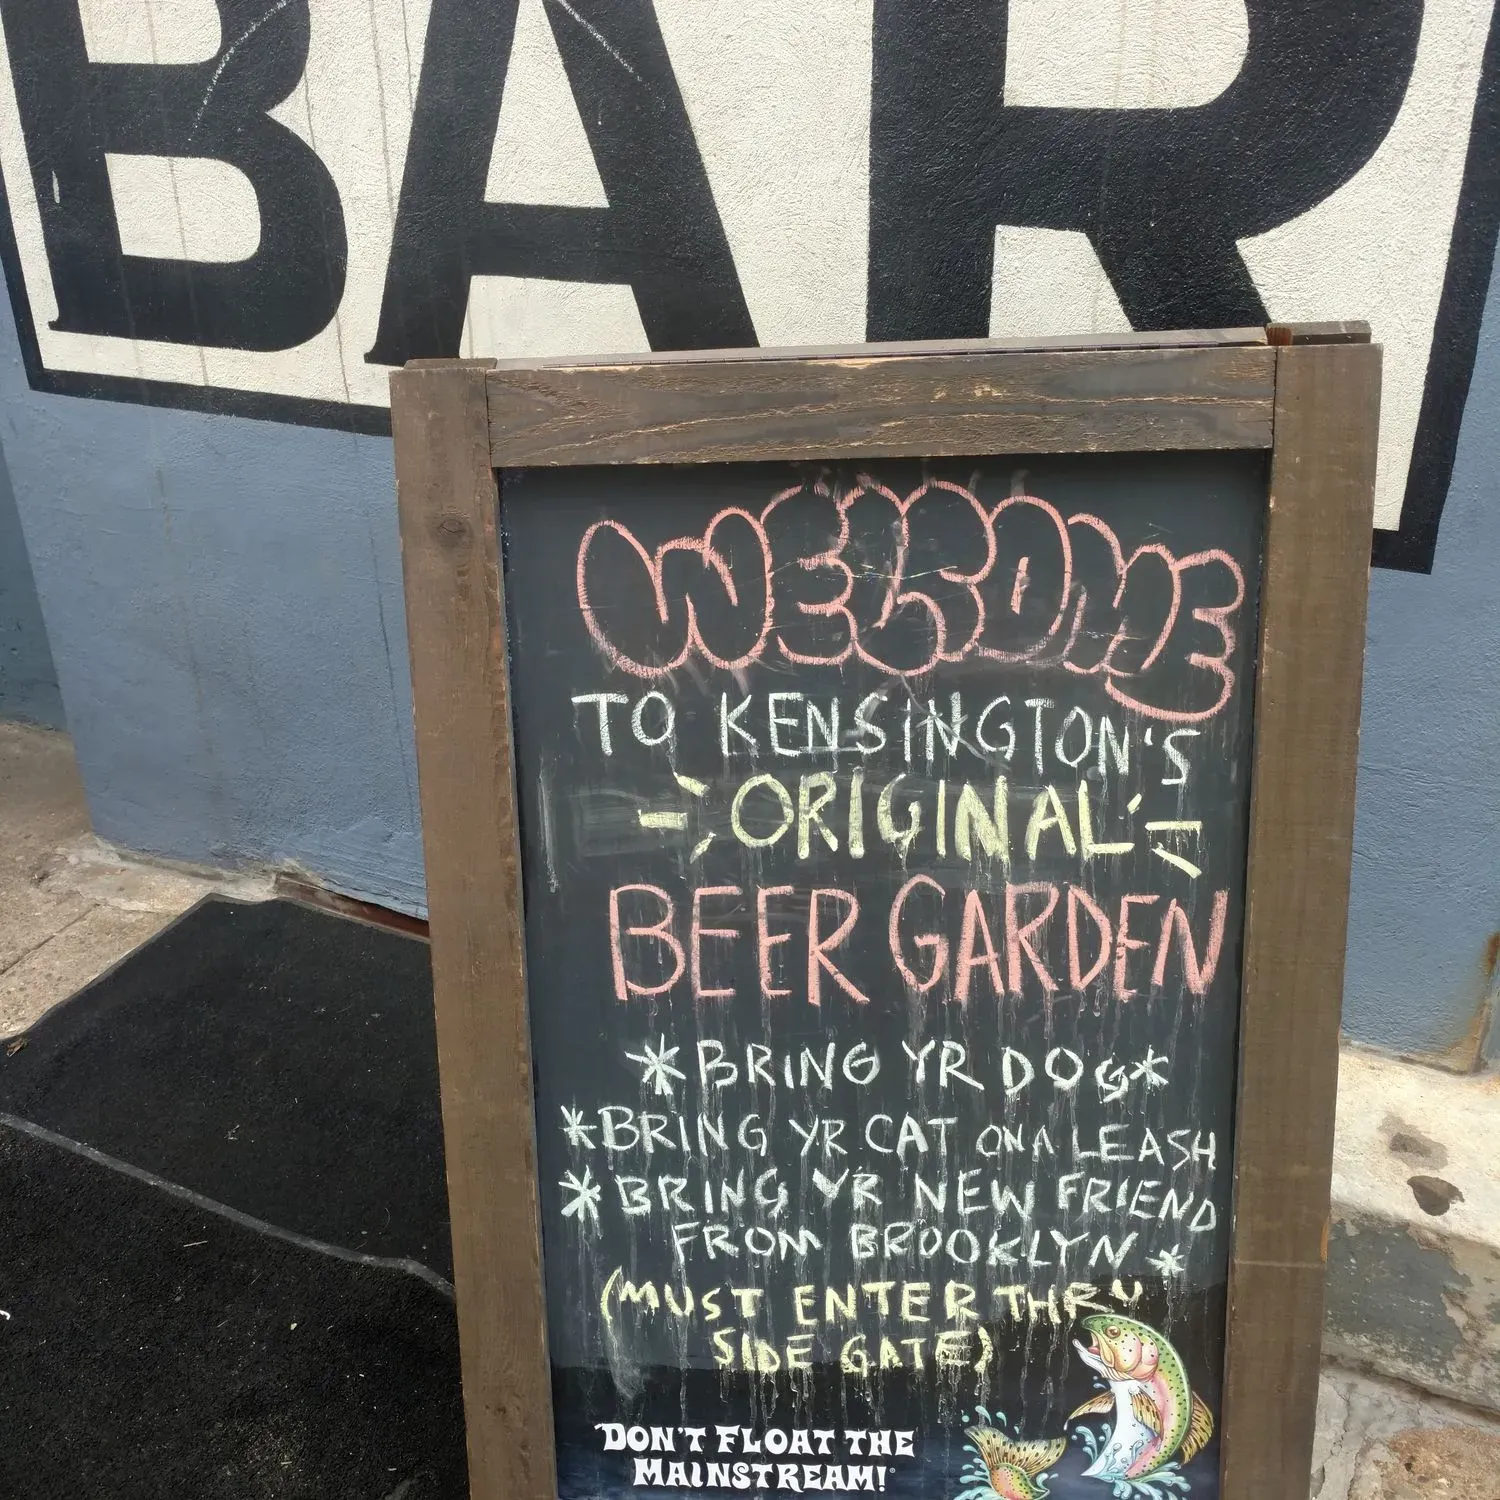 BAR
WELCOME
TO KENSINGTON'S
ORIGINAL
BEER GARDEN
*BRING YR DOG*
*BRING YR CAT ON A LEASH
*BRING YR NEW FRIEND
FROM BROOKLYN*
(MUST ENTER THRU
SIDE GATE)
DON'T FLOAT THE
MAINSTREAM!